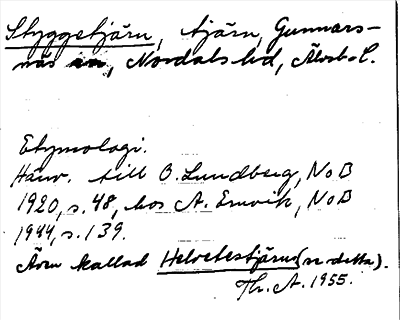 Styggetjärn, tjärn, Gunnars-
näs sn, Nordals hd, Älvsb. l.
Etymologi.
Hänv. till O. Lundberg, NoB
1920, s. 48, hos A. Ernvik, NoB
1944, s. 139.
Även kallad Helvetestjärn (se detta).
Th. A. 1955.